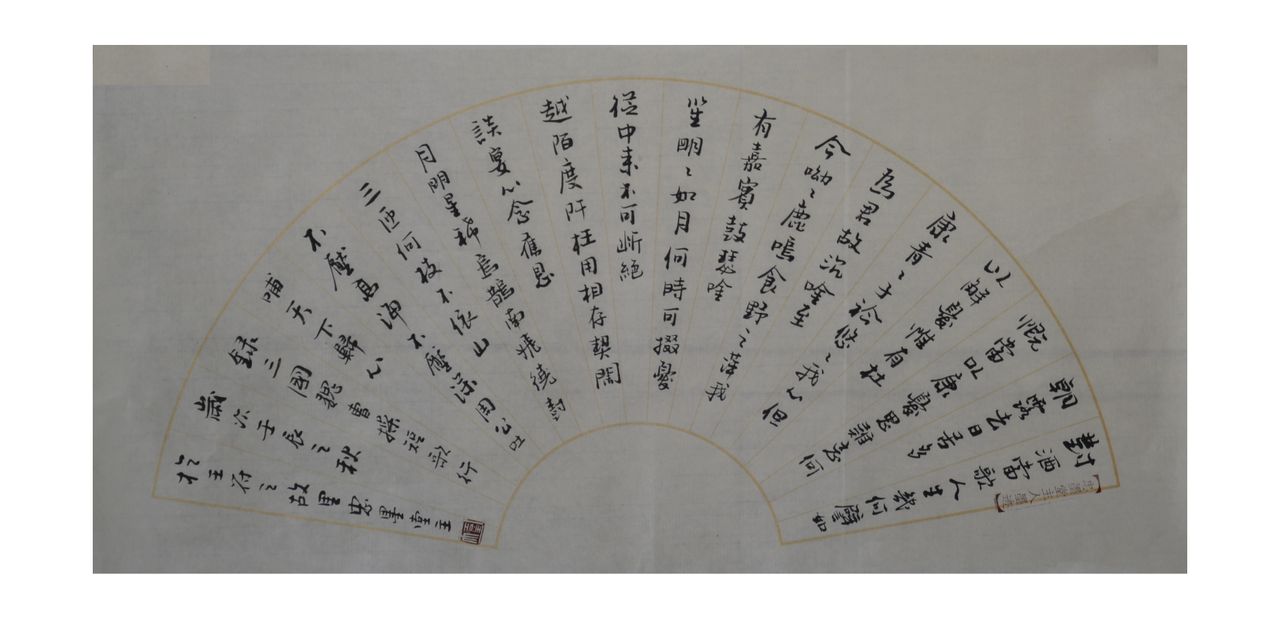 對酒當歌人生幾何譬如
朝露去日苦多
慨當以康憂思難忘何
以解憂惟有杜
康青々子衿悠々我心但
為君故沉唫至
今呦々鹿鳴食野之蘋我
有嘉賓鼓瑟吹
笙明々如月何時可掇憂
從中來不可斷絕
越陌度阡枉用相存契闊
談宴心念舊恩
月明星稀烏鵲南飛繞樹
三匝何枝不依山
不厭高海不厭深周公吐
哺天下歸心
錄三國魏曹操短歌行
歲次壬辰之秋
於王府之故里 墨堂主